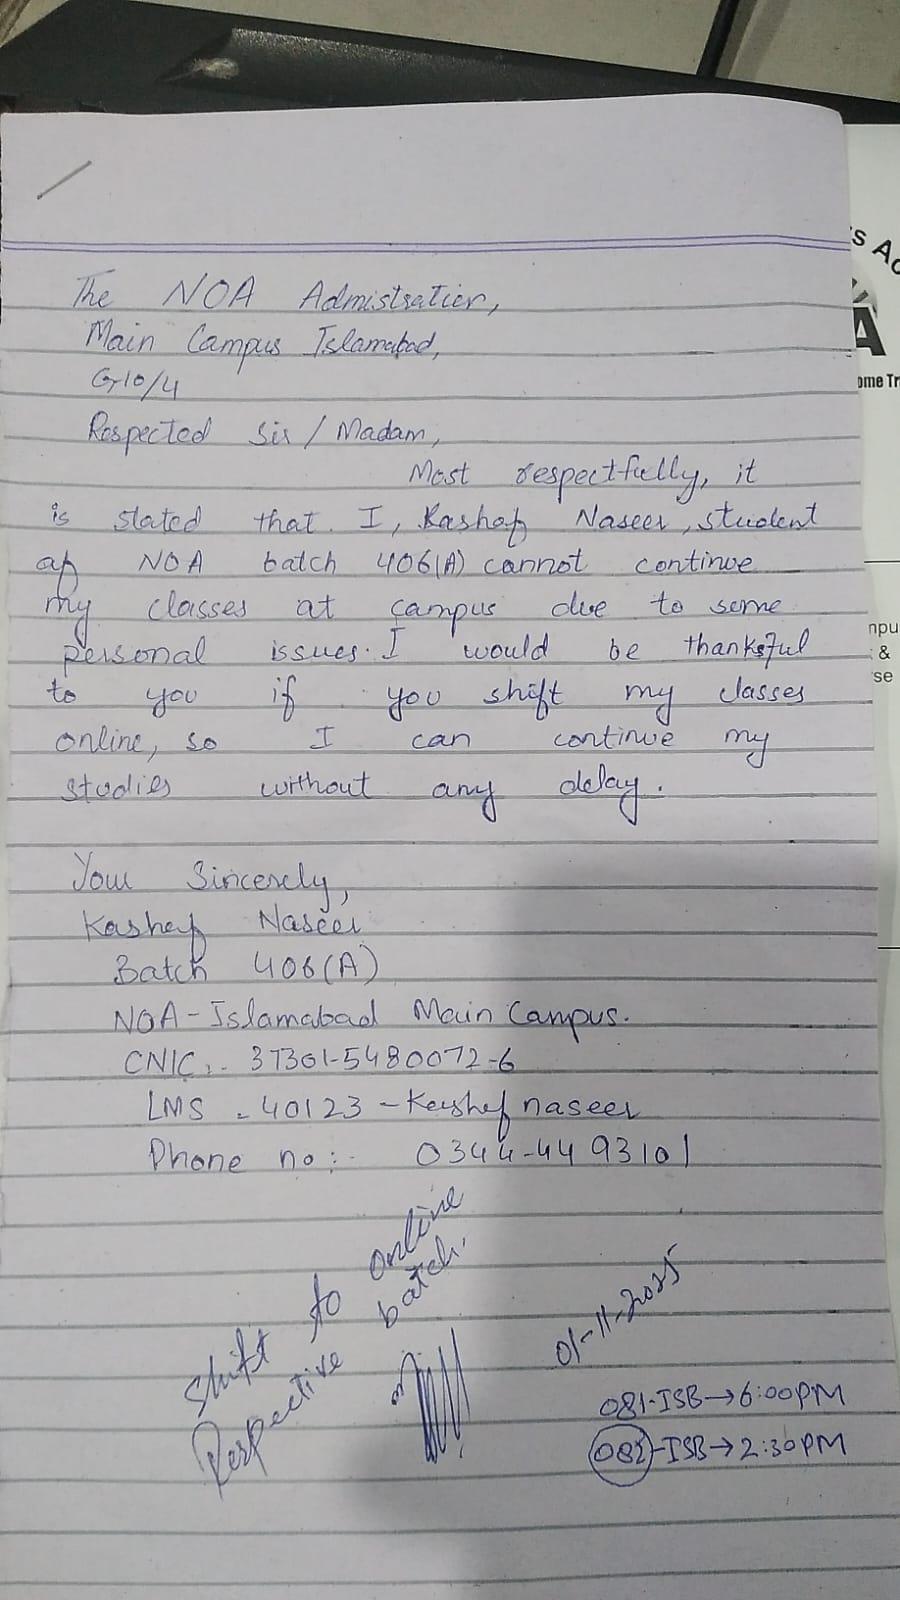 The NOA Admistration,
Main Campus Islamabad,
G-10/4
Respected Sir / Madam,
Most respectfully, it
is stated that I, Kashaf Naseer, student
of NOA batch 406(A) cannot continue
my classes at campus due to some
personal issues. I would be thanksful
to you if you shift my classes
online, so I can continue my
studies without any delay.
Your Sincerely,
Kashaf Naseer
Batch 406(A)
NOA-Islamabad Main Campus.
CNIC:- 37301-5480072-6
LMS - 40123 - Kashaf naseer
Phone no :- 0344-4493101
Shift to online
Respective batch.
01-11-2025
081-ISB→6:00PM
082-ISB→2:30PM
A
ome Tr
npu
&
se